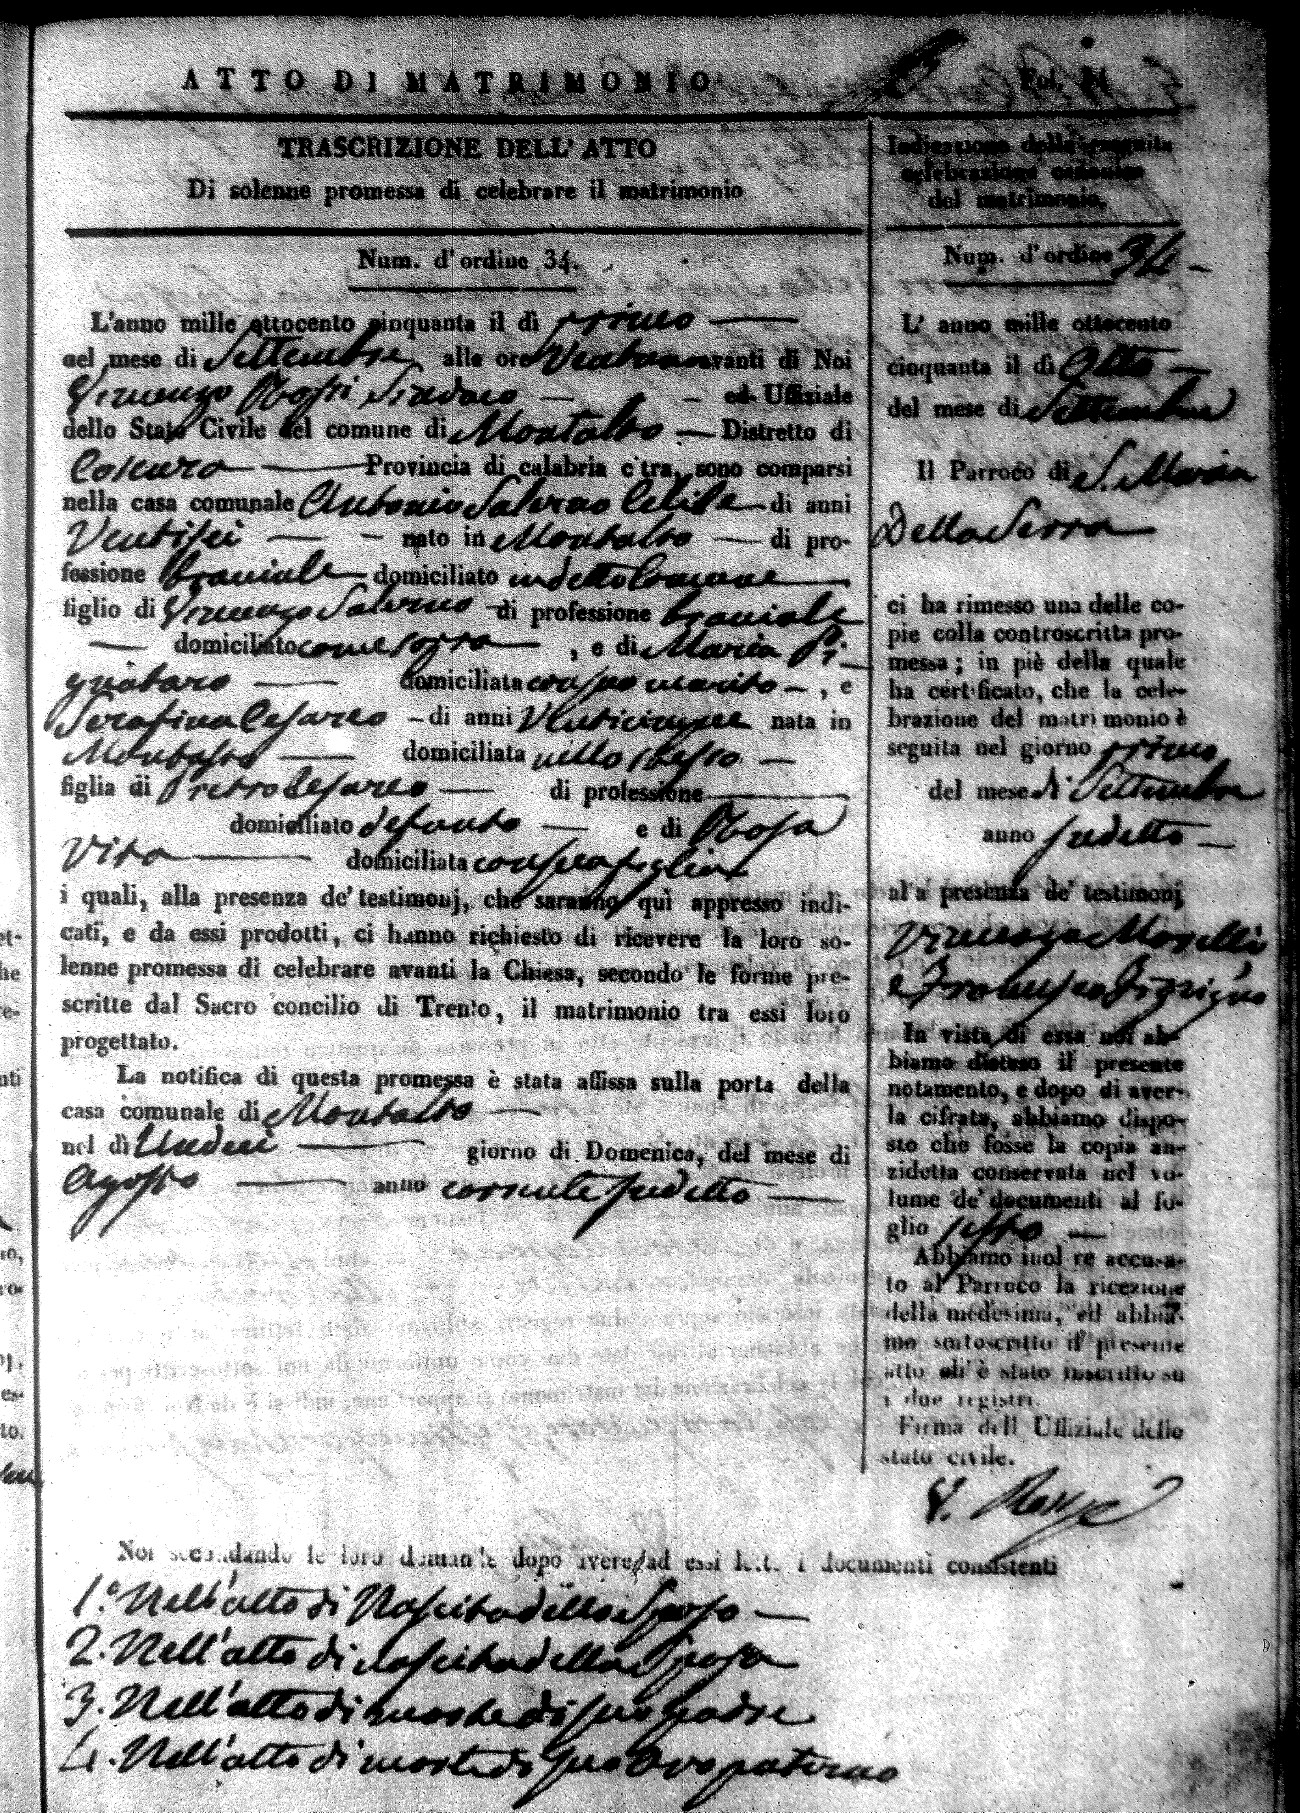 ATTO DI MATRIMONIO
TRASCRIZIONE DELL' ATTO
Di solenne promessa di celebrare il matrimonio
Num. d'ordine 34.
L'anno mille ottocento cinquanta il dì primo
nel mese di Settembre alle ore avanti di Noi
Vincenzo Sindaco ed Uffiziale
dello Stato Civile del comune di Montalto Distretto di
Cosenza Provincia di calabria citra, sono comparsi
nella casa comunale Antonio Salerno di anni
Ventisei nato in Montalto di pro-
fessione Bracciale domiciliato in detto Comune
figlio di Vincenzo Salerno di professione bracciale
domiciliato come sopra , e di Maria Pi
gnataro domiciliata con suo marito , e
Serafina Cesareo di anni Venticinque nata in
Montalto domiciliata nello stesso
figlia di Pietro Cesareo di professione
domiciliato defunto e di Rosa
Vito domiciliata con sua figlia
i quali, alla presenza de' testimonj, che saranno quì appresso indi-
cati, e da essi prodotti, ci hanno richiesto di ricevere la loro so-
lenne promessa di celebrare avanti la Chiesa, secondo le forme pre-
scritte dal Sacro concilio di Trento, il matrimonio tra essi loro
progettato.
La notifica di questa promessa è stata affissa sulla porta della
casa comunale di Montalto
nel dì Undeci giorno di Domenica, del mese di
Agosto anno corrente sudetto
Fol.
Indicazione della seguita
celebrazione canonica
del matrimonio.
Num. d'ordine 34
L' anno mille ottocento
cinquanta il dì Otto
del mese di Settembre
Il Parroco di S. Maria
Della Serra
ci ha rimesso una delle co-
pie colla controscritta pro-
messa; in piè della quale
ha certificato, che la cele-
brazione del matrimonio è
seguita nel giorno primo
del mese di Settembre
anno sudetto
alla presenza de' testimonj
Vincenzo Morelli
e Francesco
In vista di essa noi ab-
biamo disteso il presente
notamento, e dopo di aver-
la cifrata, abbiamo dispo-
sto che fosse la copia an-
zidetta conservata nel vo-
lume de' documenti al fo-
glio sesto
Abbiamo inoltre accusa-
to al Parroco la ricezione
della medesima, ed abbia-
mo sottoscritto il presente
atto ch'è stato inscritto su
i due registri.
Firma dell' Uffiziale dello
stato civile.
Noi secondando le loro domande dopo avere ad essi letti i documenti consistenti
1.º Nell'atto di Nascita dello Sposo
2. Nell'atto di nascita della Sposa
3. Nell'atto di morte di suo padre
4. Nell'atto di morte di suo Avo paterno